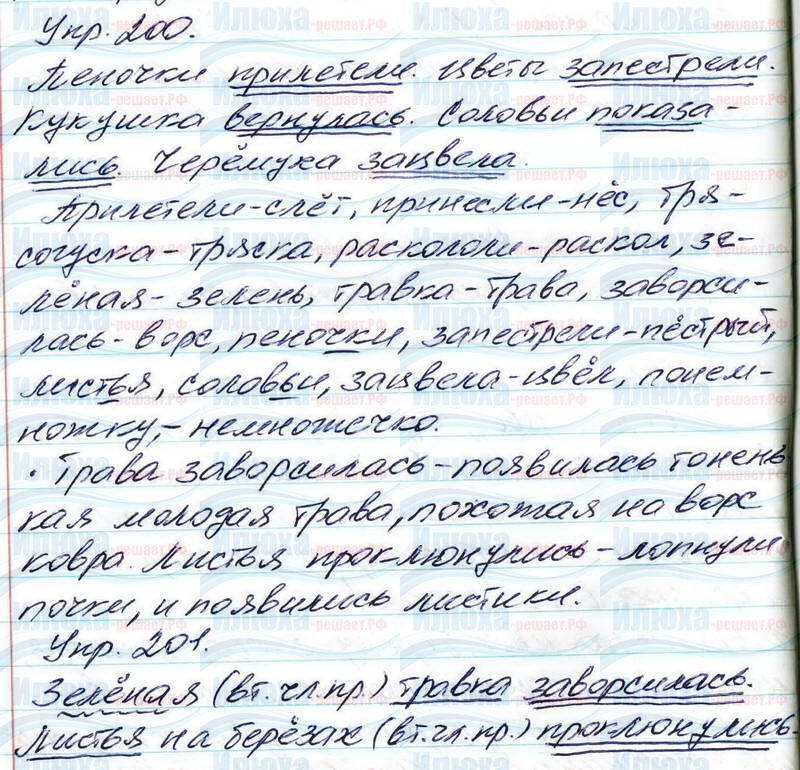 Упр. 200.
Пеночки прилетели. Цветы запестрели.
Кукушка вернулась. Соловьи показа-
лись. Черёмуха зацвела.
Прилетели-слёт, принесли-нёс, тря-
согуска-тряска, раскололи-раскол, зе-
лёная-зелень, травка-трава, заворси-
лась-ворс, пеночки, запестрели-пёстрый,
листья, соловьи, зацвела-цвёл, понем-
ножку,-немножечко.
· Трава заворсилась-появилась тонень
кая молодая трава, похожая на ворс
ковра. Листья проклюнулись-лопнули
почки, и появились листики.
Упр. 201.
Зелёная (вт.чл.пр.) травка заворсилась.
Листья на берёзах (вт.чл.пр.) проклюнулись.
Илюха-решает.РФ